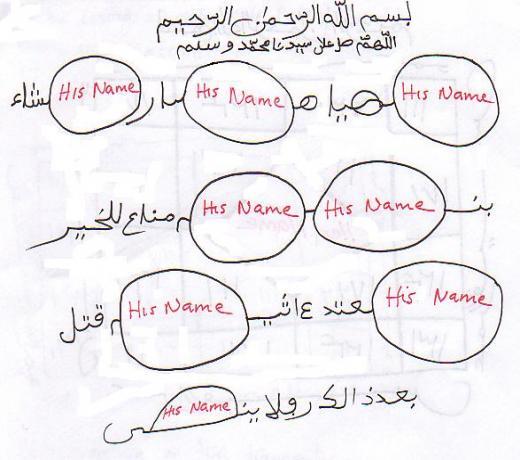 بسم الله الرحمن الرحيم
اللهم صل على سيدنا محمد وسلم
His Name هيا هـ His Name ـار His Name شاء
بنـ His Name His Name ـم مناع للخير
His Name ـعتد ع اثيـ His Name ـم قتل
His Name